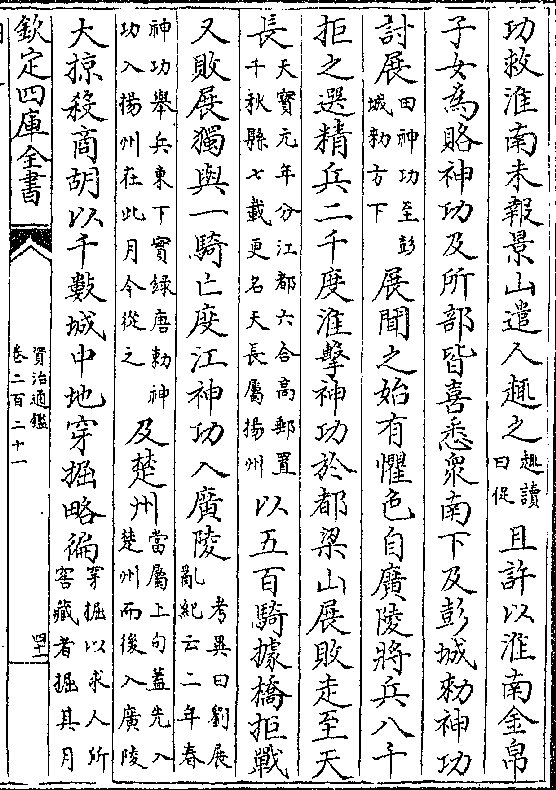 功救淮南未報景山遣人趣之趣讀曰促且許以淮南金帛
子女為賂神功及所部皆喜悉衆南下及彭城勑神功
討展田神功至彭城勑方下展聞之始有懼色自廣陵將兵八千
拒之選精兵二千度淮擊神功於都梁山展敗走至天
長天寶元年分江都六合高郵置千秋縣七載更名天長屬揚州以五百騎據橋拒戰
又敗展獨與一騎亡度江神功入廣陵考異曰劉展亂紀云二年春
神功舉兵東下實緑唐勑神功入揚州在此月今從之及楚州當屬上句蓋先入楚州而後入廣陵
大掠殺商胡以千數城中地穿掘略徧穿掘以求人所窖藏者掘其月
欽定四庫全書
資治通鑑
卷二百二十一
四十二